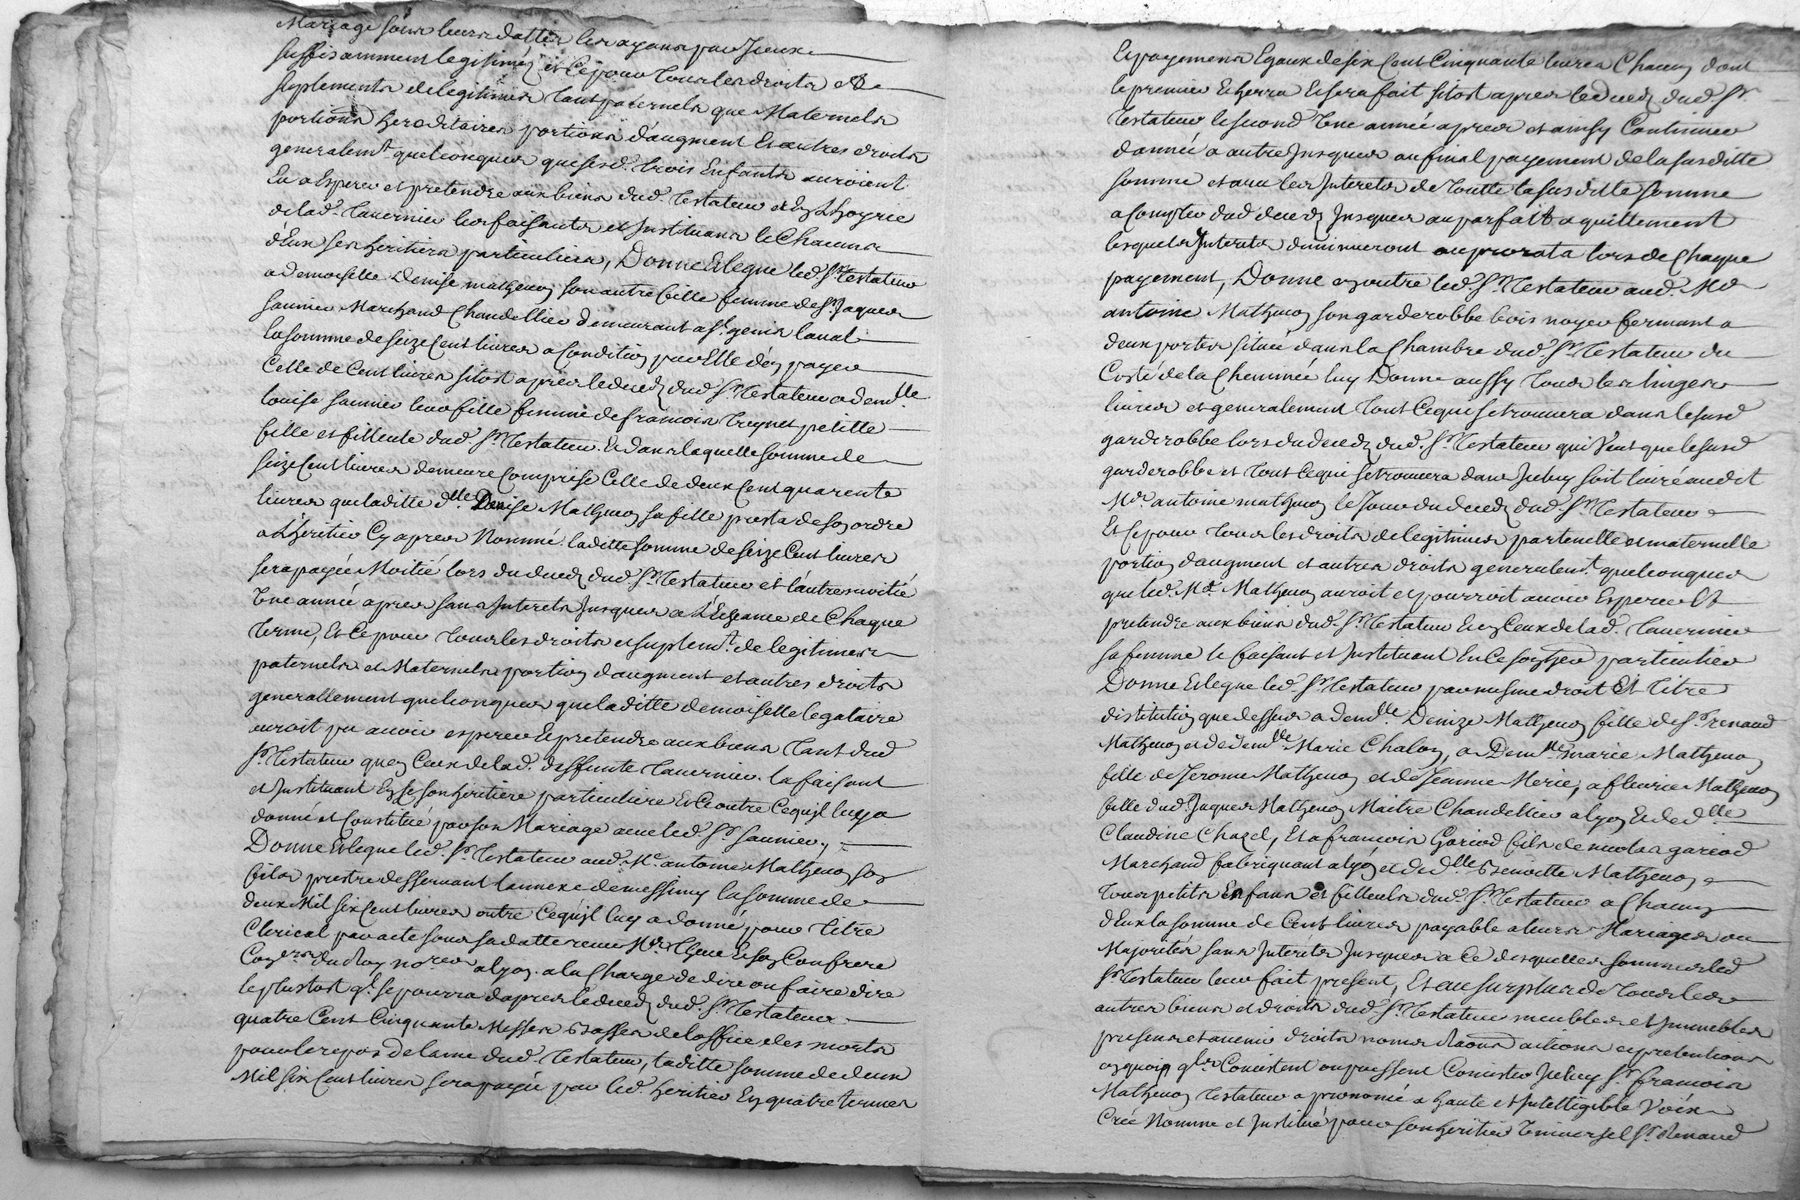 Mariage sous leurs dattes les ayant par iceux
suffisamment legitimés et ce pour tous les droits et de
suplements de legitimes tant paternels que Maternels
portions hereditaires portions d'augment et autres droits
generalemt. quelconques que sesd. trois Enfants auroient
Eu a Esperer et pretendre aux biens dud. Testateur et en L'hoyrie
de lad. Tavernier les faisants et Instituans le Chacuns
d'Eux ses heritiers particuliers, Donne Et legue led. Sr. Testateur
a demoiselle Denise mathevon son autre fille femme de Sr. Jaques
Saunier Marchand Chandellier demeurant a St. genis Laval
la somme de seize Cent livres a Condition par Elle d'en payer
Celle de Cent livres sitost apres le deceds dud. Sr. Testateur a demlle
louise saunier leur fille femme de francois Treynet petitte
fille et filleule dud. Sr. Testateur. Et dans laquelle somme de
seize Cent livres demeure Comprise Celle de deux Cent quarente
livres que laditte dlle. Denise Mathevon sa fille presta de son ordre
a L'heritier Cy apres Nommé. laditte somme de seize Cent livres
sera payée Moitié lors du deceds dud. Sr. Testateur et l'autre moitié
Une année apres sans Interets Jusques a L'Echeance de Chaque
terme, Et Ce pour tous les droits et suplemt. de legitimes
paternels et Maternels portion d'augment et autres droits
generallement quelconques que laditte demoiselle legataire
auroit pu avoir esperer Et pretendre aux biens tant dud
Sr. Testateur qu'en Ceux de lad. deffunte Tavernier. la faisant
et Instituant En Ce son heritiere particuliere Et Ce outre Ce qu'il luy a
donné et Constitué par son Mariage avec led. Sr. Saunier.
Donne Et legue led. Sr. Testateur aud. Me. antoine Mathevon son
fils prestre desservant l'annexe de messimy la somme de
deux Mil six Cent livres outre Ce qu'il luy a donné pour titre
Clerical par acte sous sa datte receu Me. Et son Confrere
Coners. du Roy nores. a lyon. a la Charge de dire ou faire dire
le plustost ql. se pourra d'apres le deceds dud. Sr. Testateur
quatre Cent Cinquante Messes basses de l'office des morts
pour le repos de l'ame dud. Testateur, laditte somme de deux
Mil six Cent livres sera payée par led. heritier En quatre termes
Et payemens Egaux de six Cent Cinquante livres Chacun dont
le premier Echerra Et sera fait sitost apres le deceds dud. Sr.
Testateur le second Une année apres et ainsy Continuer
d'année a autre Jusques au final payement de la susditte
somme et avec les Interets de toutte la susditte somme
a Compter dud. deceds Jusques au parfait aquittement
lesquels Interets diminueront au prorata lors de Chaque
payement, Donne en outre led. Sr. Testateur aud. Me
antoine Mathevon son garderobbe bois noyer fermant a
deux portes située dans la Chambre dud. Sr. Testateur du
Costé de la Cheminée luy Donne aussy tous les linges
livres et generalement tout Ce qui se trouvera dans le susd
garderobbe lors du deceds dud. Sr. Testateur qui Veut que le susd
garderobbe et tout Ce qui se trouvera dans Iceluy soit livré audit
Me. antoine mathevon le Jour du deceds dud. Sr. Testateur
Et Ce pour tous les droits de legitimes parternelle et maternelle
portion d'augment et autres droits generalemt. quelconques
que led. Me. Mathevon auroit et pourroit avoir Esperer Et
pretendre aux biens dud. Sr. Testateur Et en Ceux de lad. Tavernier
sa femme le faisant et Instituant En Ce son her. particulier
Donne Et legue led. Sr. Testateur par mesme droit Et titre
d'istitution que dessus a demlle. Denize Mathevon fille de Sr. Renaud
Mathevon et de demlle Marie Chalon, a Demlle marie Mathevon
fille de Jerome Mathevon et de Jeanne Merie, a fleurie Mathevon
fille dud. Jaques Mathevon Maitre Chandellier a lyon Et de dlle
Claudine Chazel, Et a francois Gariod fils de nicolas gariod
Marchand fabriquant a lyon et de dlle. benoitte Mathevon
tous petits Enfans et filleuls dud. Sr. Testateur a Chacun
d'Eux la somme de Cent livres payable a leurs Mariages ou
Majorités sans Interets Jusques a Ce desquelles sommes led
Sr. Testateur leur fait present, Et au surplus de tous les
autres biens et droits dud. Sr. Testateur meubles et Immeubles
presens et avenir droits noms Raons actions et pretentions
en quoy qls. Concistent ou puissent Concister Iceluy Sr. francois
Mathevon Testateur a prononcé a haute et Intelligible Voix
Créé Nommé et Institué pour son heritier Universel Sr. Renaud